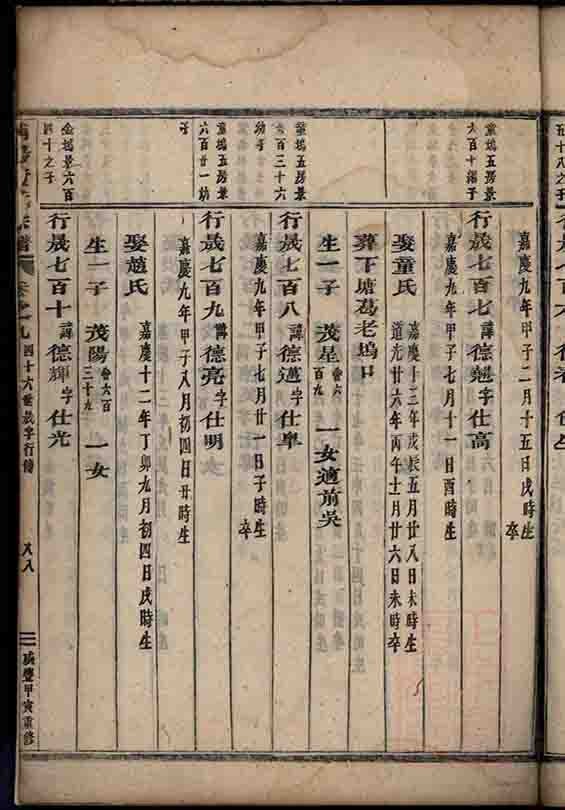 嘉慶九年甲子二月十五日戌時生
卒
行晟七百七諱德翹字仕高
嘉慶九年甲子七月十一日酉時生
娶童氏
嘉慶十三年戊辰五月廿八日未時生
道光廿六年丙午十月廿六日未時卒
葬下塘葛老塢口
生一子 茂星會六百九 一女適前吳
六百三十六
幼子
嘉慶九年甲子七月廿一日子時生
卒
行晟七百八諱德邁字仕舉
六百廿一幼
子
行晟七百九諱德亮字仕明
嘉慶九年甲子八月初四日丑時生
娶趙氏
嘉慶十二年丁卯九月初四日戌時生
生一子 茂陽會六百三十九 一女
金塢景六百
四十之子
行晟七百十諱德輝字仕光
卷之九 四十六世晟字行傳
八八
咸豐甲寅重修